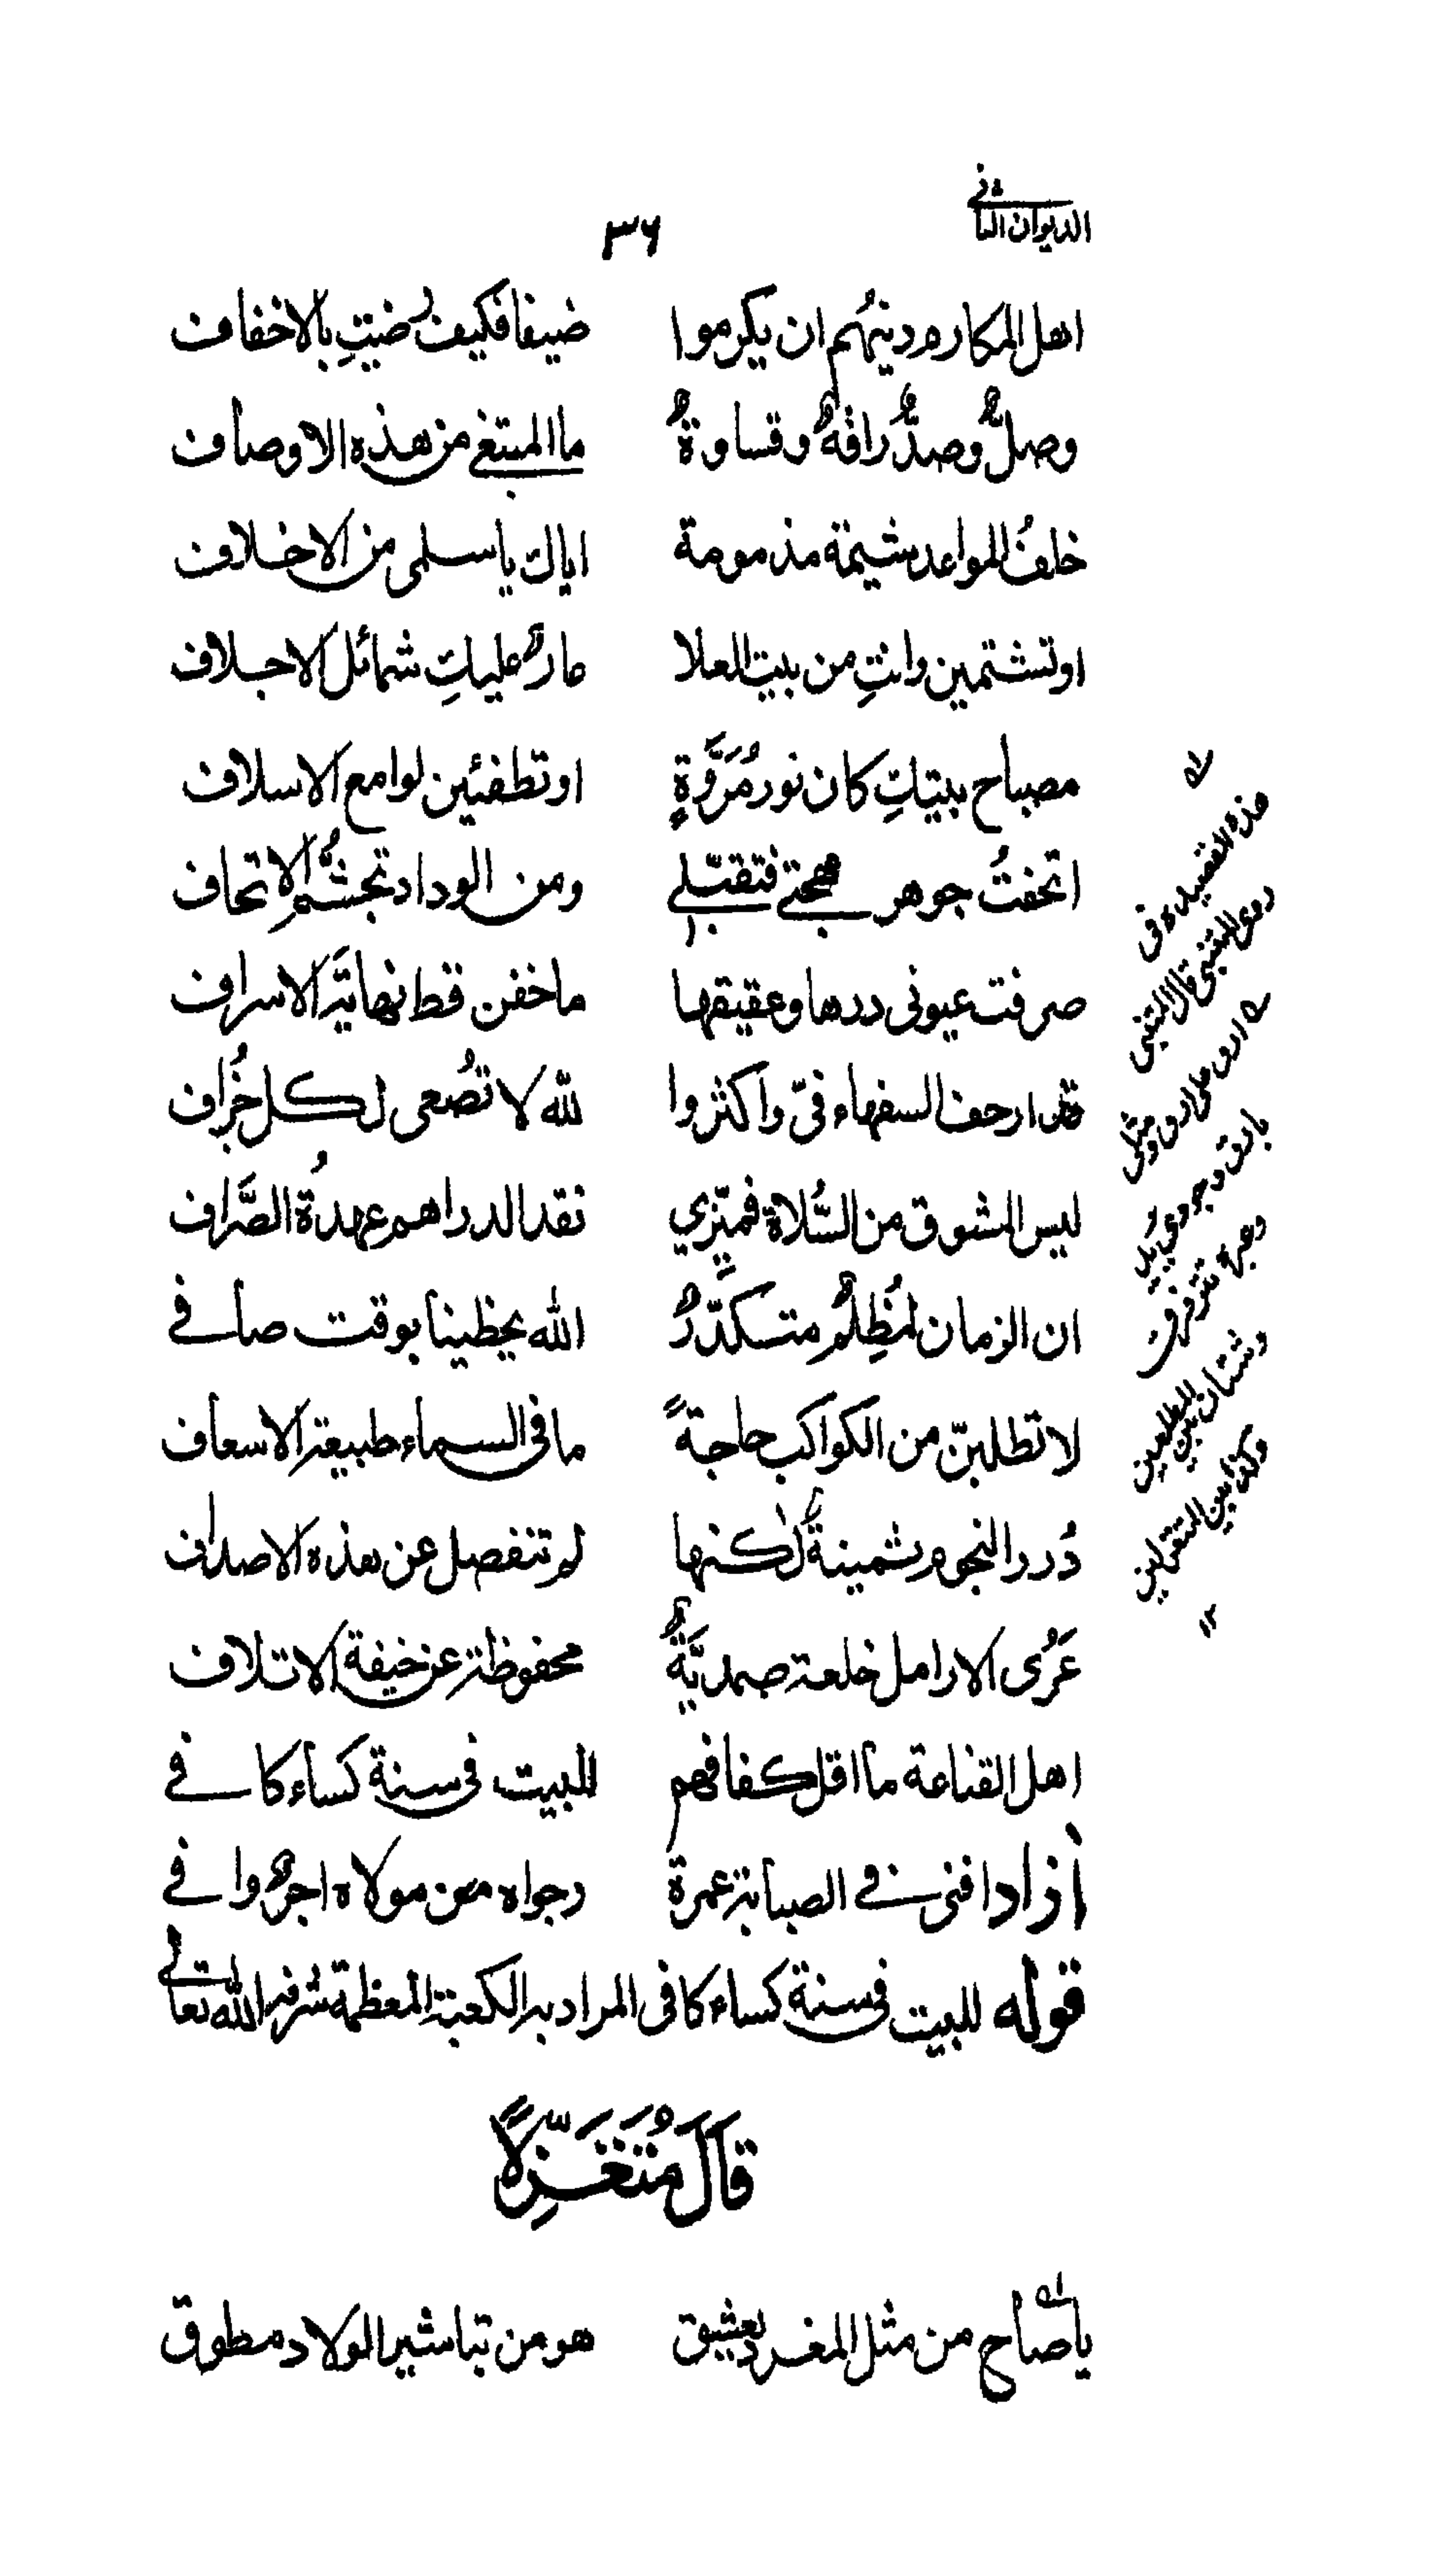 الديوان الثاني
٣٦
اهل المكارم دينهُم ان يكرموا ضيفا فكيف رضيتِ بالاخفاف
وصلٌ وصدٌّ رافةٌ وقساوةٌ ما المبتغى من هذه الاوصاف
خلفُ المواعد شيمة مذمومة اياك يا سلمى من الاخلاف
اوتشتمين وانتِ من بيت العلا عارٌ عليكِ شمائل الاجلاف
مصباح بيتكِ كان نور مُرَوَّةٍ اوتطفئين لوامع الاسلاف
اتحفتُ جوهر مهجتي فتقبّلي ومن الوداد تجشُّم الاتحاف
صرفت عيونى دررها وعقيقها ما خفن قط نهايَة الاسراف
قد ارجف السفهاء فىّ واكثروا لله لا تُصغى لكل خُراف
ليس المشوق من السُّلاة فميّزي نقد الدراهم عهدُة الصَّراف
ان الزمان لمُظِلمٌ متكدّرٌ الله يحظينا بوقت صافي
لا تطلبنّ من الكواكب حاجةً ما فى السماء طبيعة الاسعاف
دُرر النجوم ثمينةٌ لٰكنها لم تنفصل عن هذه الاصداف
عَرُى الارامل خلعة صمديَّةٌ محفوظة عن خيفة الاتلاف
اهل القناعة ما اقل كفافهم للبيت فى سنة كساء كافي
آزاد افنى في الصبابة عمرة رجواه من مولاه اجرٌ وافي
قوله للبيت فى سنة كساء كافى المراد به الكعبة المعظمة شرفها الله تعالى
قَالَ مُتَغَزِّلًا
يا صاح من مثل المغرد يعشق هو من تباشير الولاد مطوق
هذه القصيده فى
روى المتنبى قال المتنبى
ارق على ارق ومثلى
يارق وجوى يزيد
وعبرة تترقرق
وشتان بين المطلعين